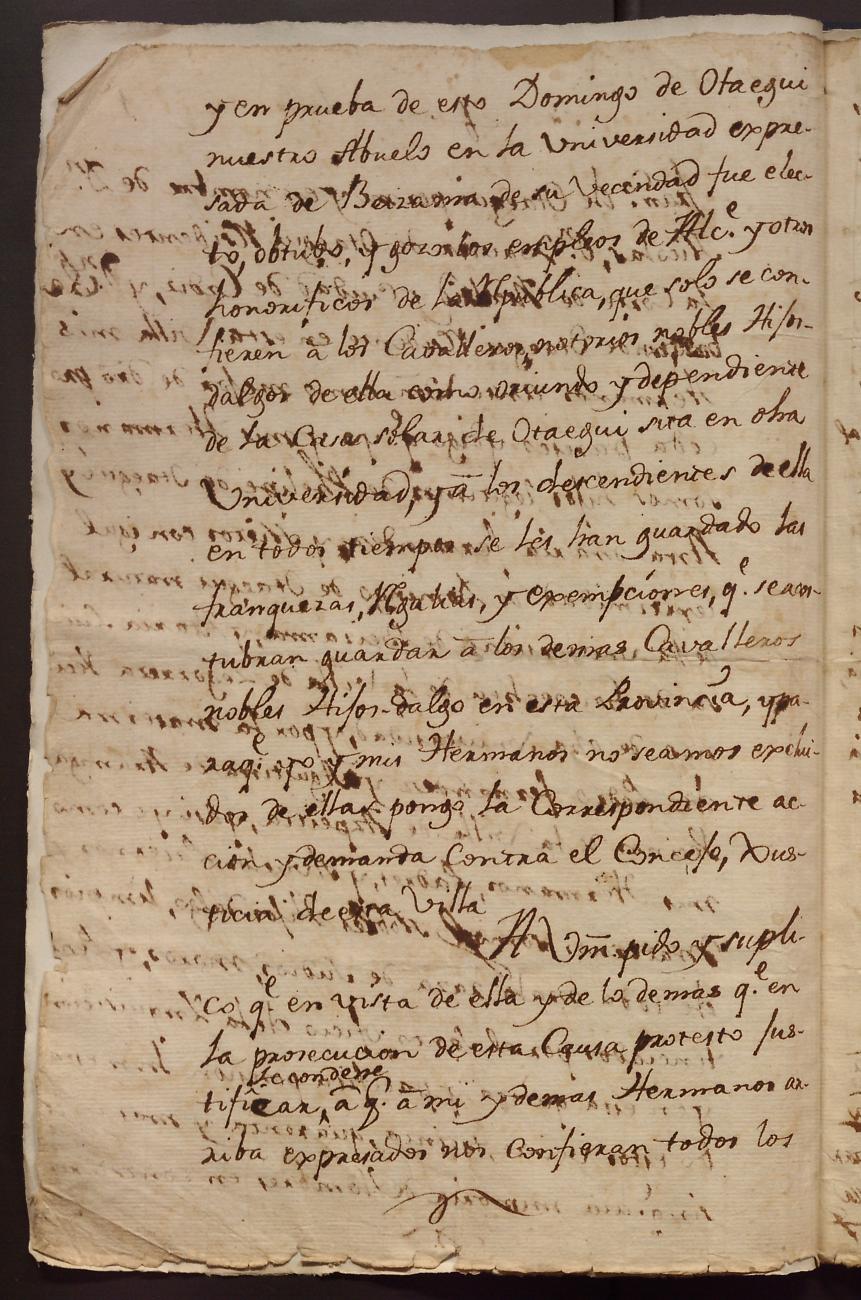 y en prueba de esto Domingo de Otaegui
nuestro Abuelo en la Universidad expre-
sada de de su Vecindad fue elec-
to, obtubo, y gozo los empleos de Alc.e y otros
honorificos de la Republica, que solo se con-
fieren â los Cavalleros, notorios nobles Hijos-
dalgos de ella como oriundo y dependiente
de la Casa solar de Otaegui sita en dha
Universidad, y â los descendientes de ella
en todos tiempos se les han guardado las
franquezas, Regalias, y exempciones, q.e se acos-
tubran guardar â los demas Cavalleros
nobles Hijos-dalgo en esta Provincia, y pa-
raq.e yo y mis Hermanos no seamos exclui-
dos de ellas pongo la Correspondiente ac-
ción y demanda Contra el Concejo, Xus-
ticia de esta Villa
A Vm. pido y supli-
co q.e en vista de ella y de lo demas q.e en
la prosecucion de esta Causa protesto Jus-
tificar, se condene â q.e â mi y demas Hermanos ar-
riba expresados nos Confieran todos los